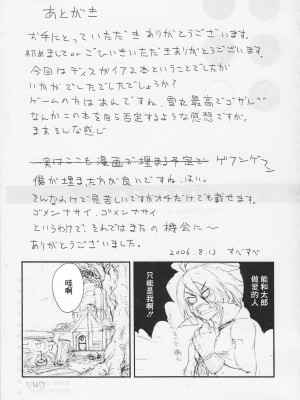 あとがき
お手にとっていただきありがとうございます。
初めまして or ごひいきいただきありがとうございます。
今回はディスガイア2本ということでしたが
いかがでしたでしたでしょうか?
ゲームの方はあんですね、雪丸最高でゴザル。
なんかこの本を自ら否定するような感想ですが、
まあそんな感じ
実はここも漫画で埋まる予定で ゲフンゲフン
傷が埋またた方が良いですね、はい。
そんなわけで見苦しいですがオチだけでも載せます。
ゴメンナサイ、ゴメンナサイ
というわけで、それではまたの機会に〜
ありがとうございました。
2006.8.13 すべすべ
能和太郎
做愛的人
只能是我啊!!
哇啊!